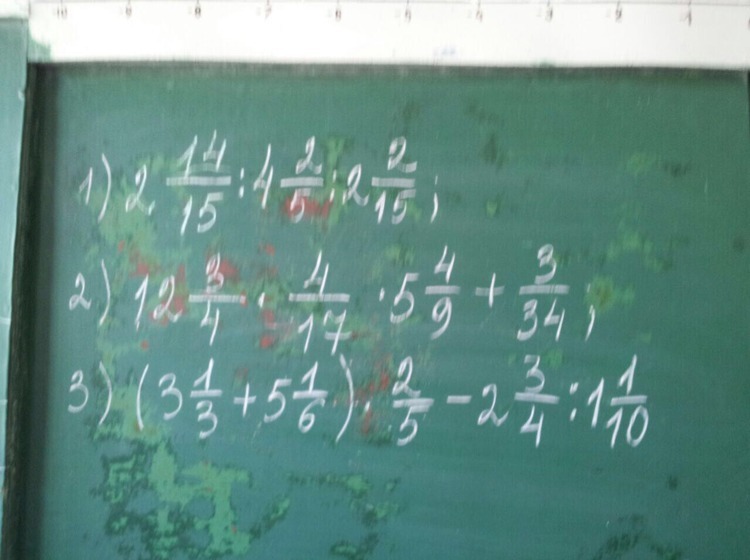 1) 2 14/15 : 4 2/5 : 2 2/15 ;
2) 12 3/4 · 4/17 · 5 4/9 + 3/34 ;
3) (3 1/3 + 5 1/6) · 2/5 - 2 3/4 : 1 1/10